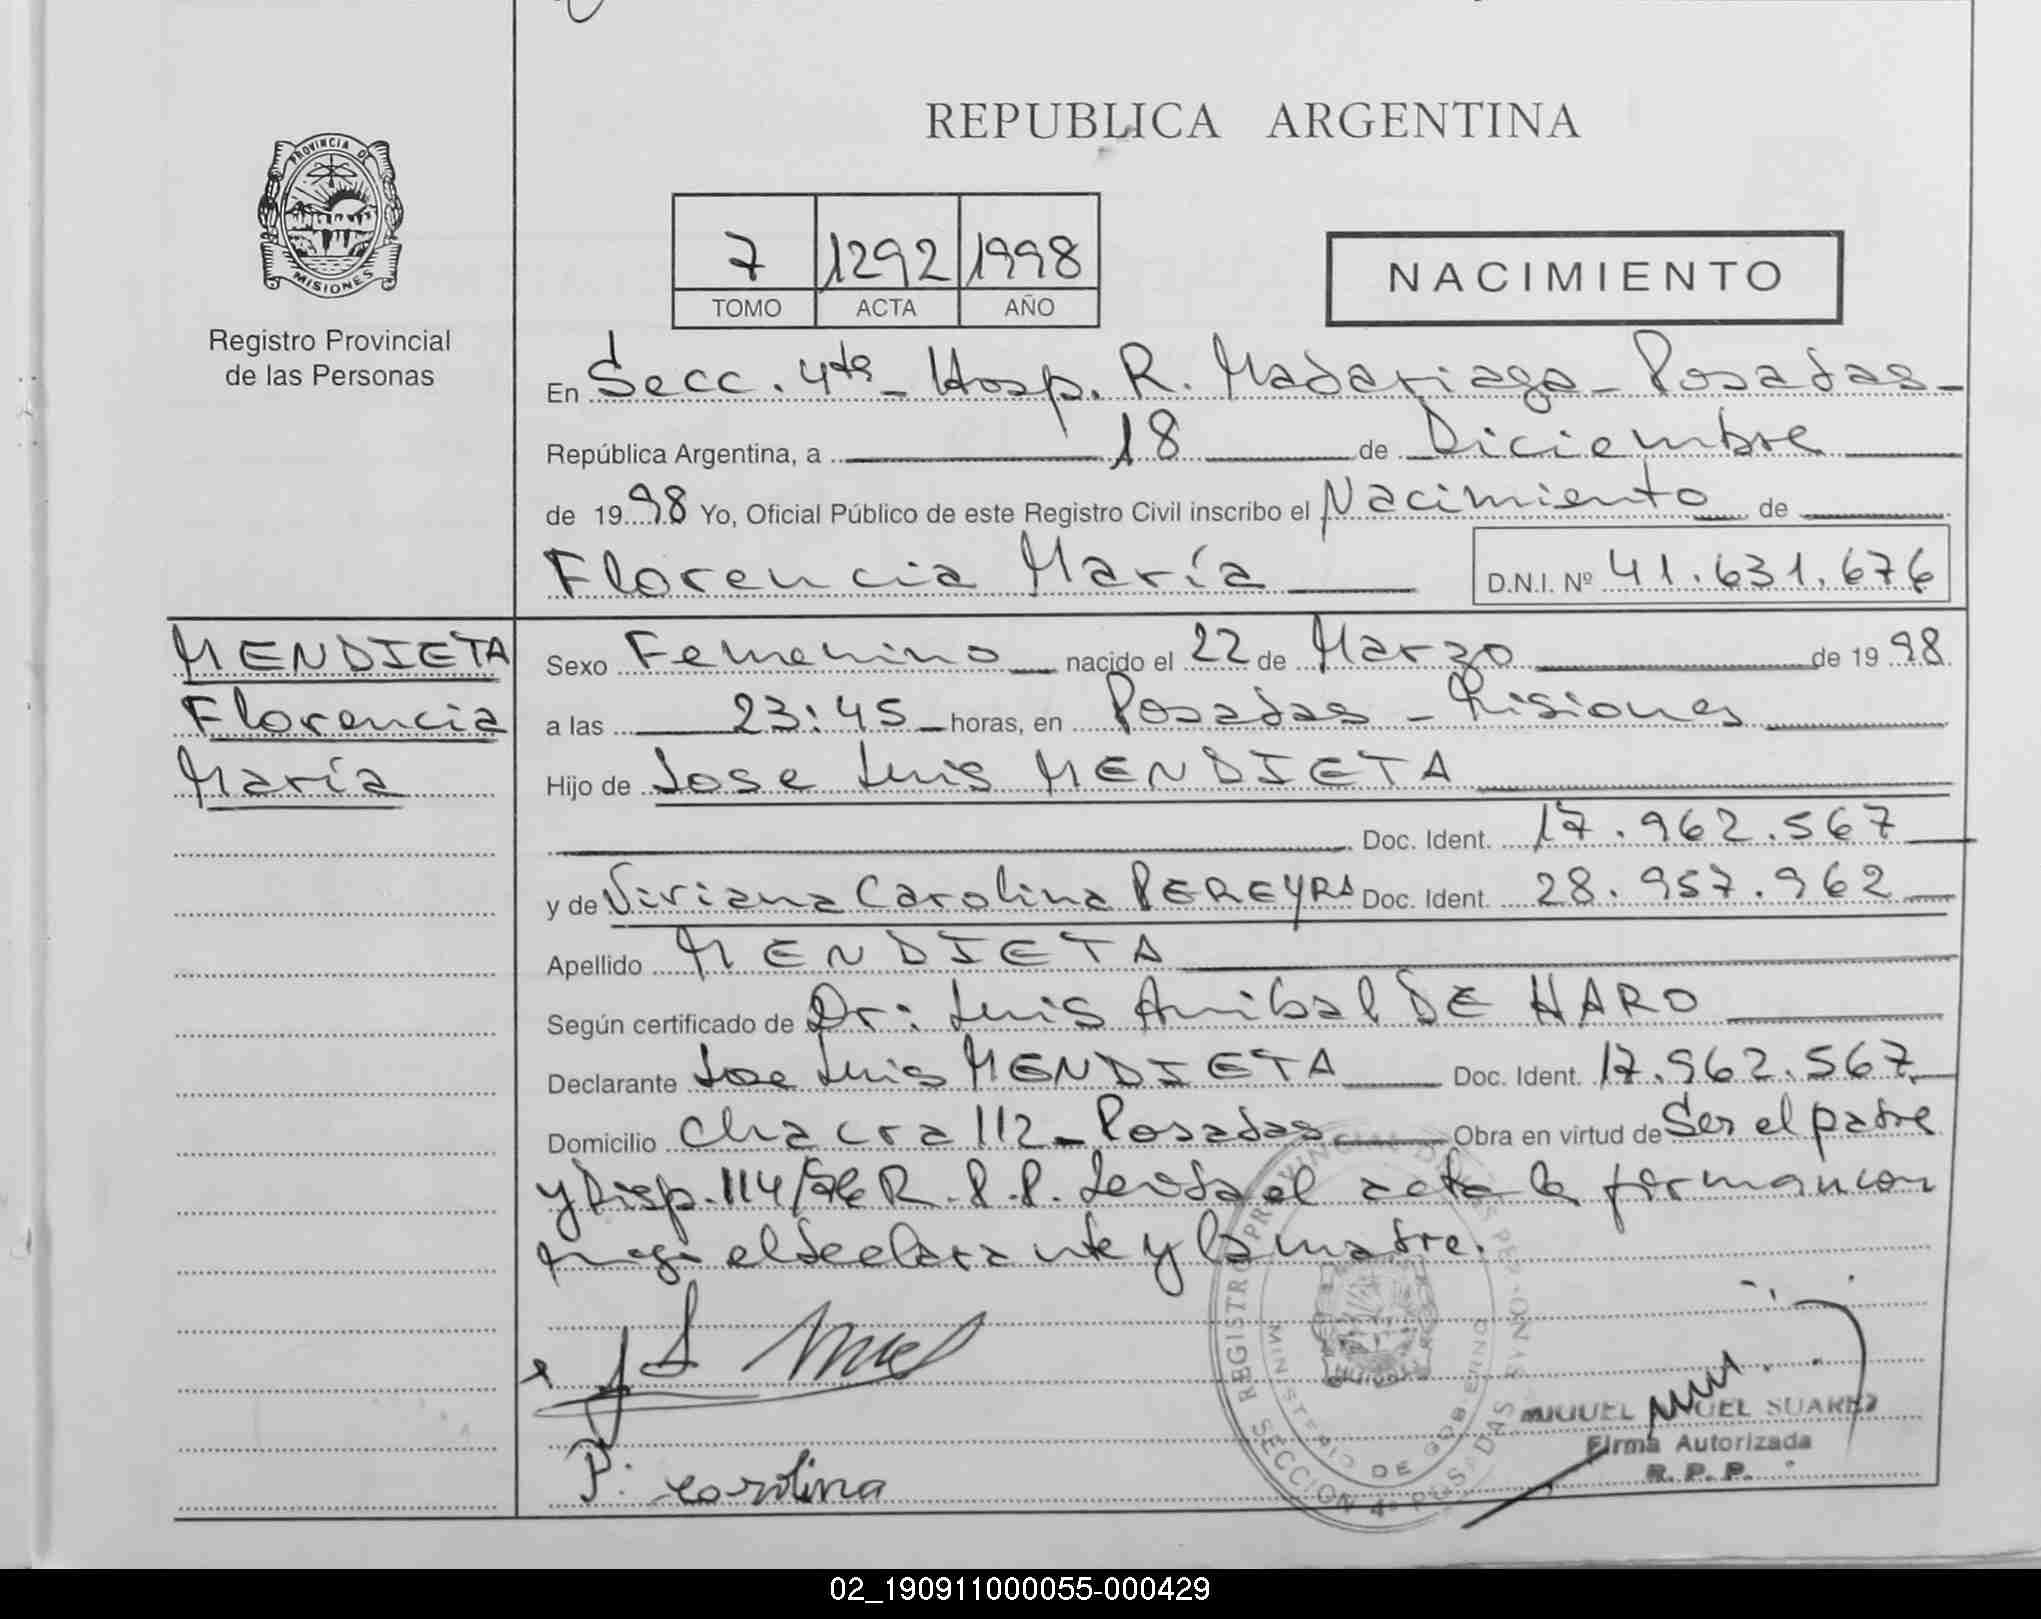 REPUBLICA ARGENTINA
PROVINCIA DE
MISIONES
Registro Provincial
de las Personas
7 1292 1998
TOMO ACTA AÑO
NACIMIENTO
En Secc. 4ta - Hosp. R. Madariaga - Posadas -
República Argentina, a 18 de Diciembre
de 1998 Yo, Oficial Público de este Registro Civil inscribo el Nacimiento de
Florencia María D.N.I. Nº 41.631.676
MENDIETA
Florencia
María
Sexo Femenino nacido el 22 de Marzo de 1998
a las 23:45 horas, en Posadas - Misiones
Hijo de Jose Luis MENDIETA
Doc. Ident. 17.962.567
y de Viviana Carolina PEREYRA Doc. Ident. 28.957.962
Apellido MENDIETA
Según certificado de Dr: Luis Anibal DE HARO
Declarante Jose Luis MENDIETA Doc. Ident. 17.962.567
Domicilio Chacra 112 - Posadas Obra en virtud de Ser el padre
y Disp. 114/96 R.P.P. Leida el acta la forman con
migo el declarante y la madre.
P. Carolina
REGISTRO PROVINCIAL DE LAS PERSONAS
MINISTERIO DE GOBIERNO
SECCION 4ª POSADAS
MIGUEL ANGEL SUAREZ
Firma Autorizada
R. P. P.
02_190911000055-000429